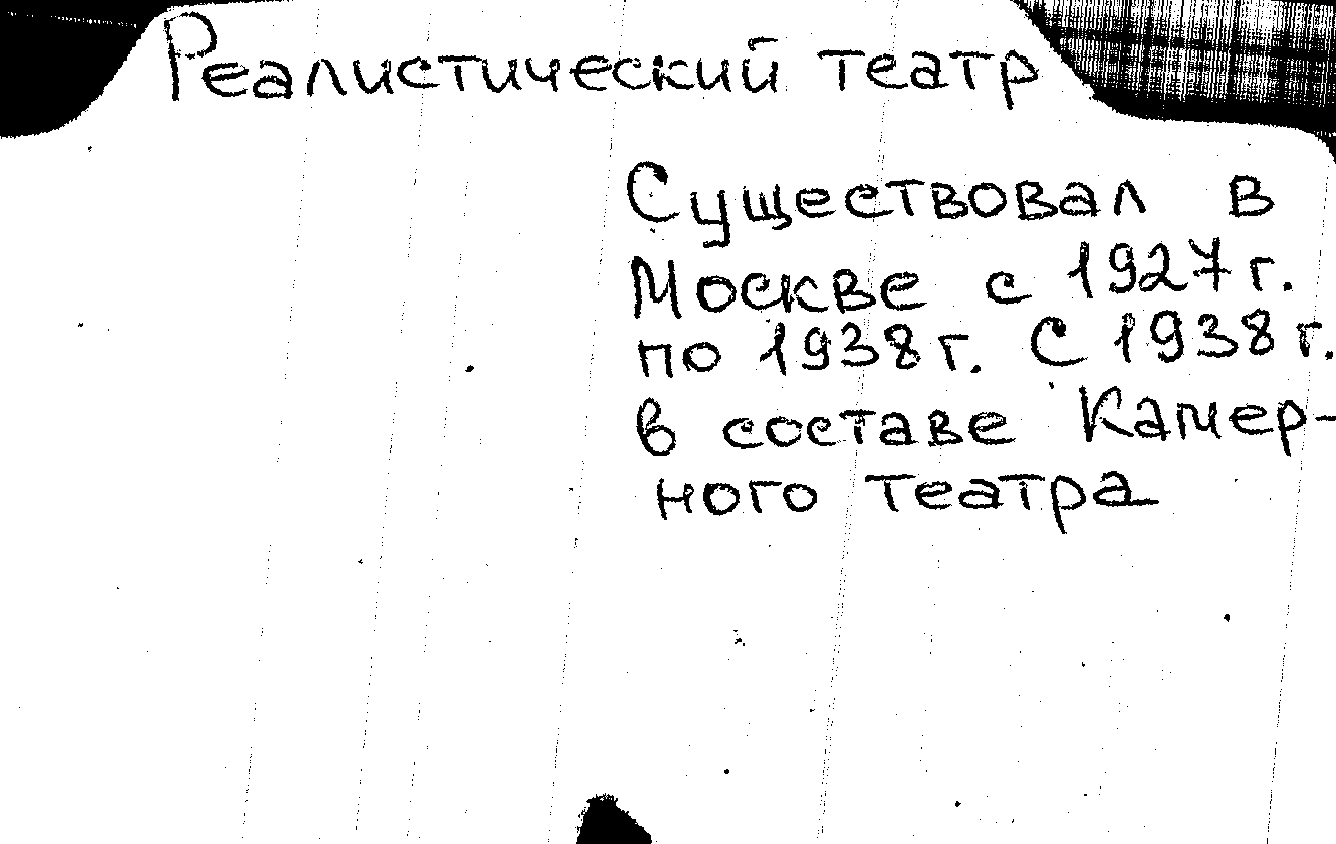 Реалистический театр
Существовал в
Москве с 1927 г.
по 1938 г. С 1938 г.
в составе Камер-
ного театра